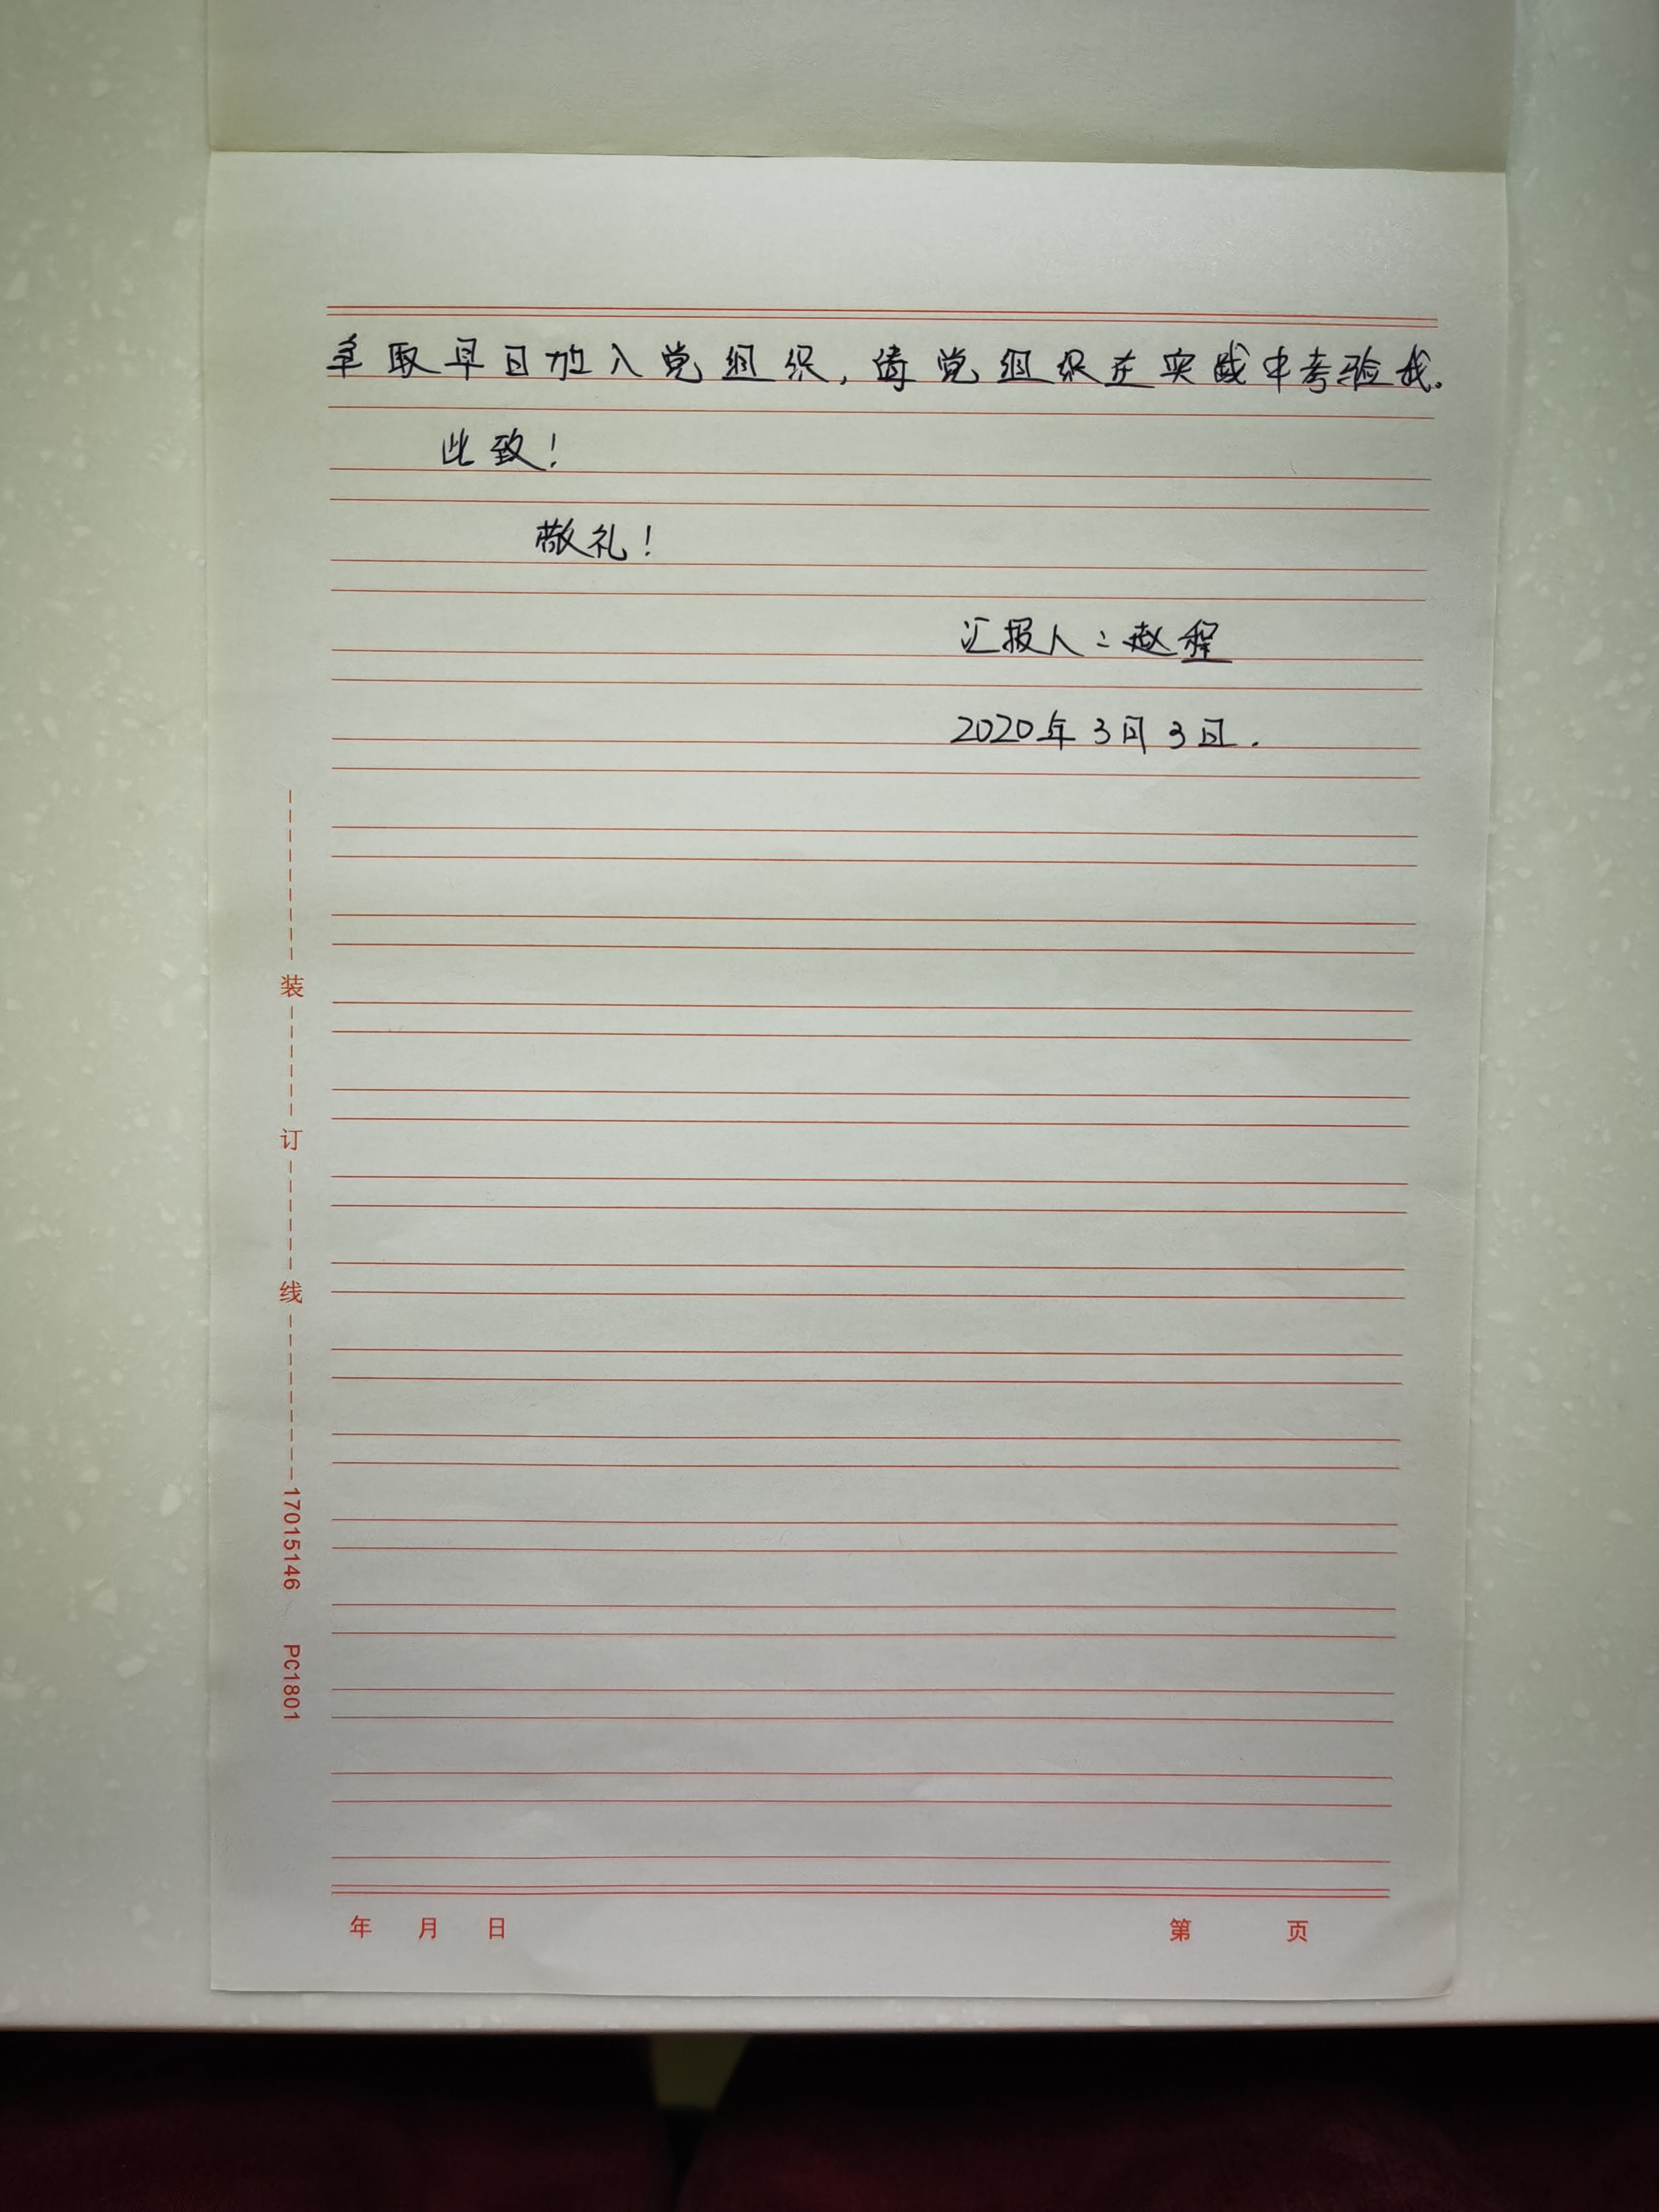 争取早日加入党组织，请党组织在实践中考验我。
此致！
敬礼！
汇报人：赵程
2020年3月3日.
装订线 17015146 PC1801
年 月 日 第 页